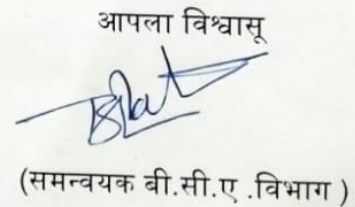 आपला विश्वासू
(समन्वयक बी.सी.ए .विभाग )